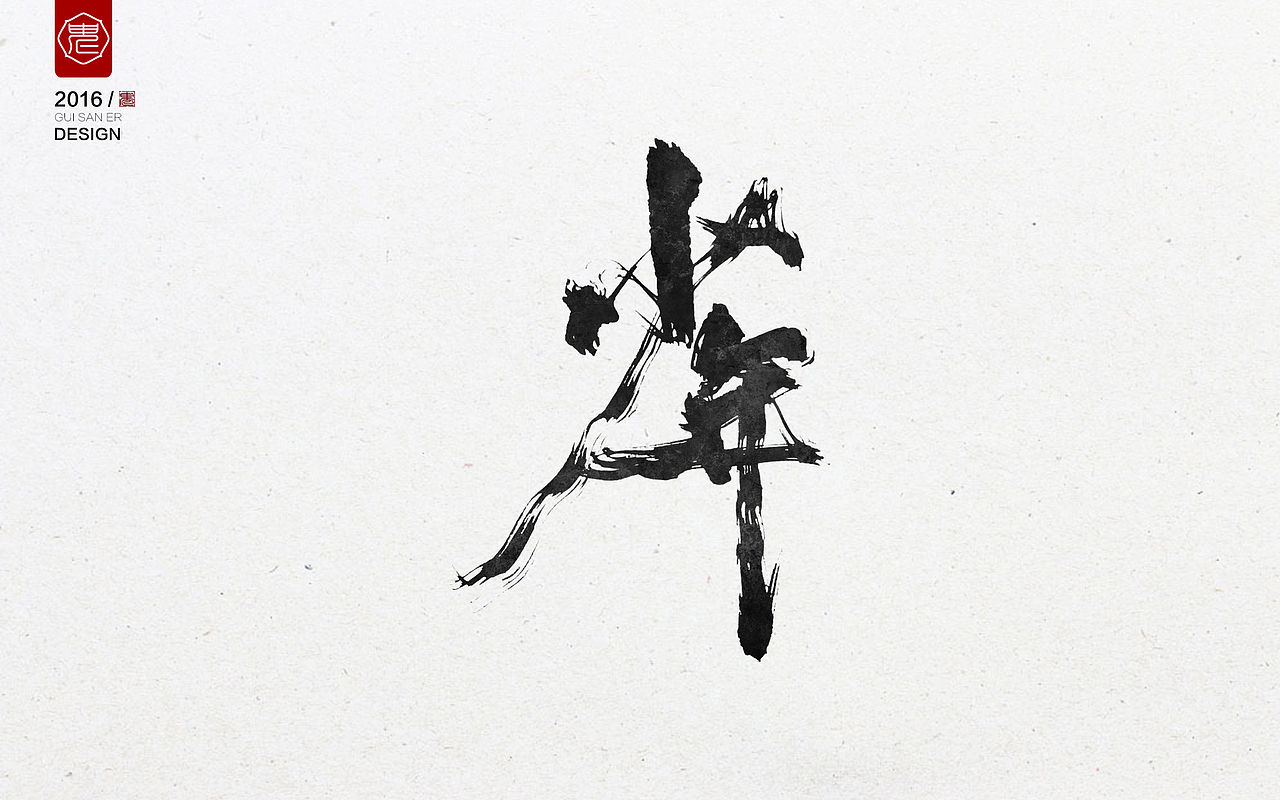 2016 /
GUI SAN ER
DESIGN
少年